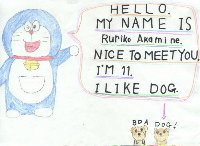 HELLO.
MY NAME IS
Ruriko Akamine.
NICE TO MEET YOU.
I'M 11.
I LIKE DOG.
DOG!